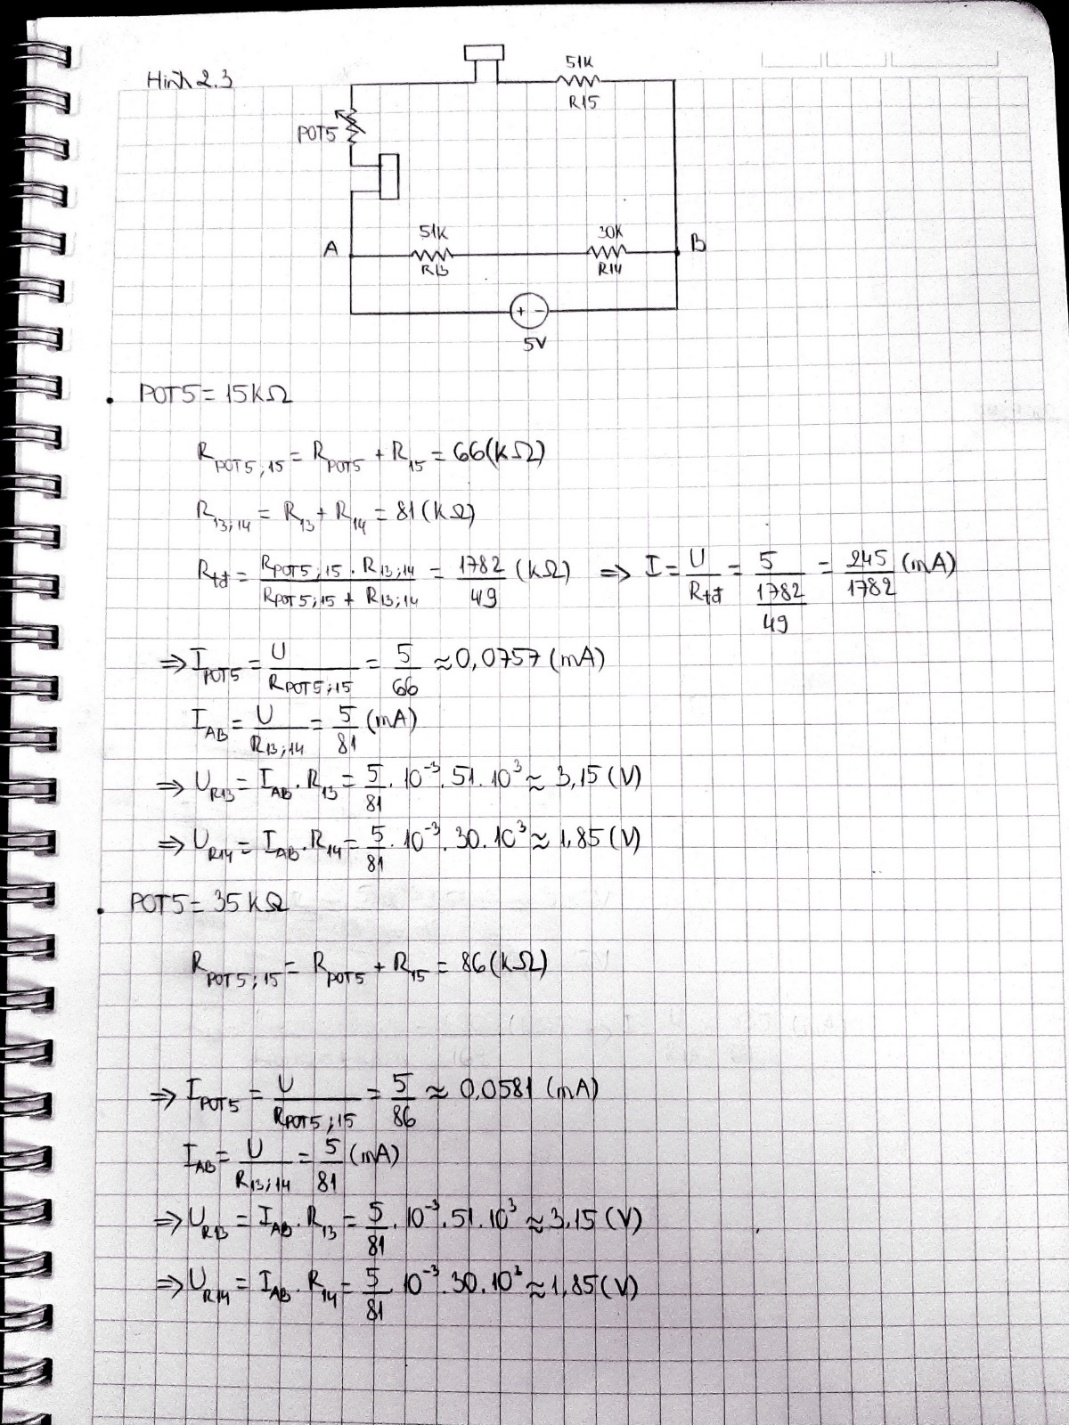 Hình 2.3
51K
R15
POT5
A
51K
R13
30K
R14
B
+ -
5V
• POT5 = 15kΩ
R_POT5;15 = R_POT5 + R_15 = 66(kΩ)
R_13;14 = R_13 + R_14 = 81(kΩ)
R_tđ = (R_POT5;15 . R_13;14)/(R_POT5;15 + R_13;14) = 1782/49 (kΩ) => I = U/R_tđ = 5/(1782/49) = 245/1782 (mA)
=> I_POT5 = U/R_POT5;15 = 5/66 ≈ 0,0757 (mA)
I_AB = U/R_13;14 = 5/81 (mA)
=> U_R13 = I_AB . R_13 = 5/81 . 10^-3 . 51 . 10^3 ≈ 3,15 (V)
=> U_R14 = I_AB . R_14 = 5/81 . 10^-3 . 30 . 10^3 ≈ 1,85 (V)
• POT5 = 35kΩ
R_POT5;15 = R_POT5 + R_15 = 86(kΩ)
=> I_POT5 = U/R_POT5;15 = 5/86 ≈ 0,0581 (mA)
I_AB = U/R_13;14 = 5/81 (mA)
=> U_R13 = I_AB . R_13 = 5/81 . 10^-3 . 51 . 10^3 ≈ 3,15 (V)
=> U_R14 = I_AB . R_14 = 5/81 . 10^-3 . 30 . 10^3 ≈ 1,85 (V)